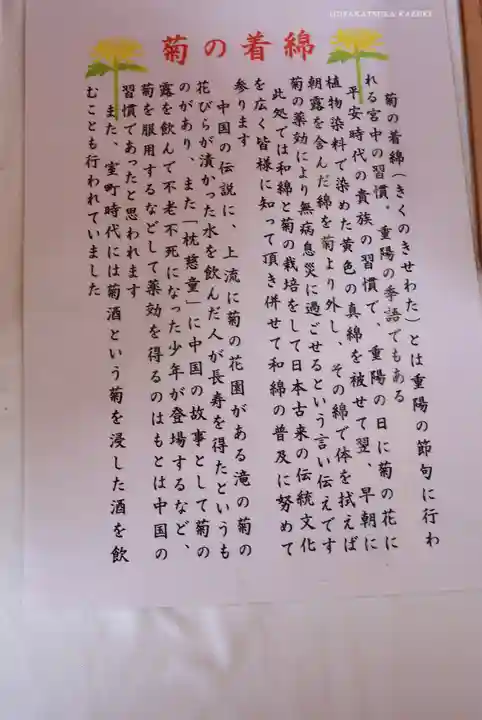 HIRAKATSUKA KAZUKI
菊の着綿
菊の着綿(きくのきせわた)とは重陽の節句に行わ
れる宮中の習慣。重陽の季語でもある
平安時代の貴族の習慣で、重陽の日に菊の花に
植物染料で染めた黄色の真綿を被せて翌、早朝に
朝露を含んだ綿を菊より外し、その綿で体を拭えば
菊の薬効により無病息災に過ごせるという言い伝えです
此処では和綿と菊の栽培をして日本古来の伝統文化
を広く皆様に知って頂き併せて和綿の普及に努めて
参ります
中国の伝説に、上流に菊の花園がある滝の菊の
花びらが漬かった水を飲んだ人が長寿を得たというも
のがあり、また「枕慈童」に中国の故事として菊の
露を飲んで不老不死になった少年が登場するなど、
菊を服用するなどして薬効を得るのはもとは中国の
習慣であったと思われます
また、室町時代には菊酒という菊を浸した酒を飲
むことも行われていました